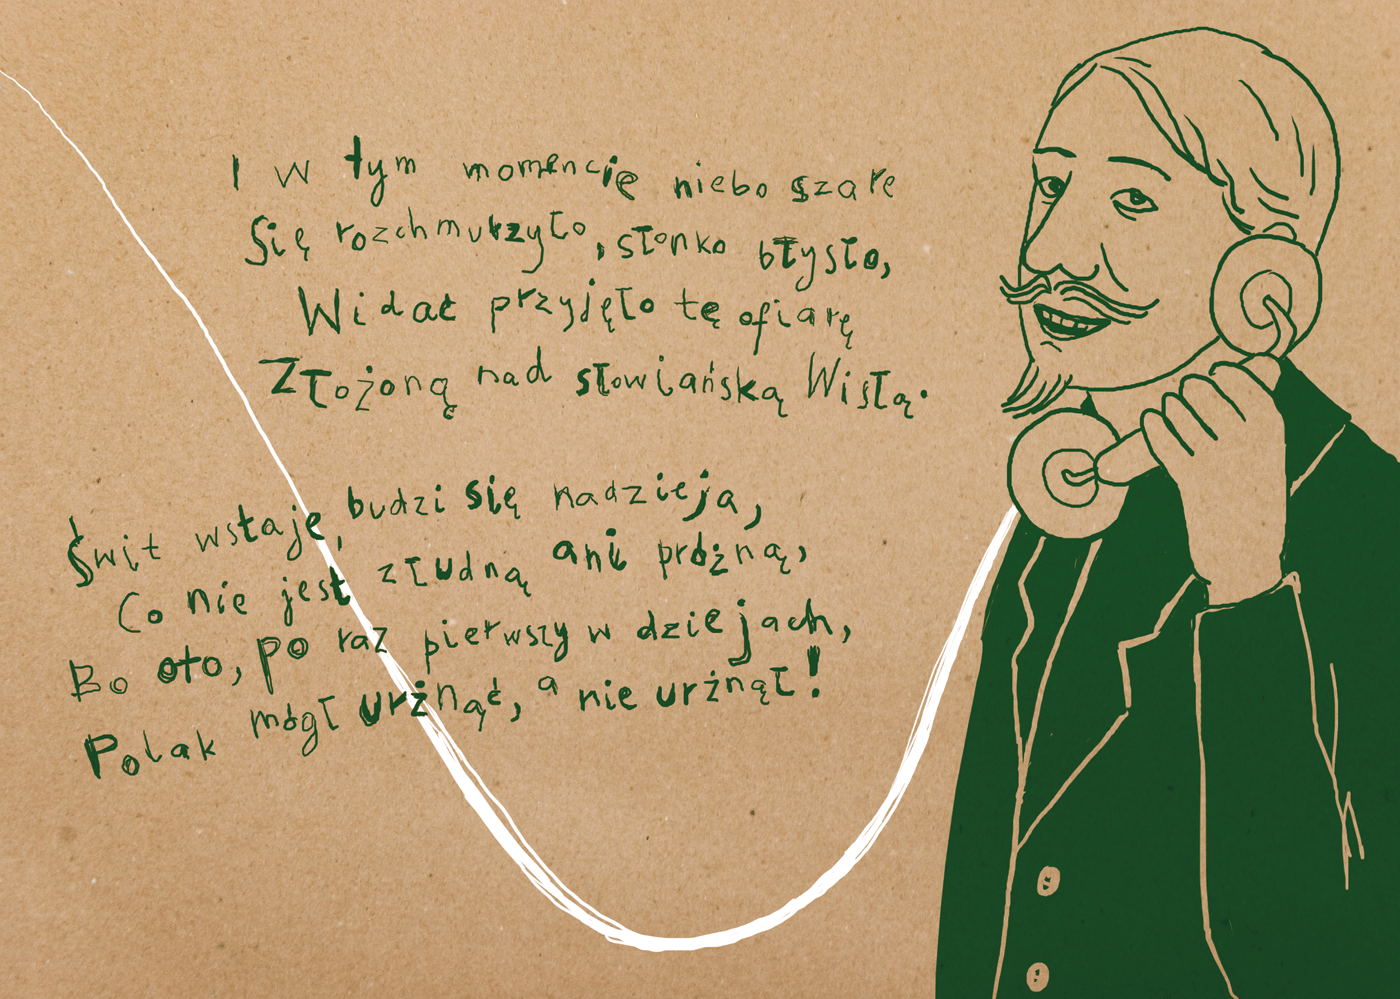 I w tym momencie niebo szare
Się rozchmurzyło, słonko błysło,
Widać przyjęło tę ofiarę
Złożoną nad słowiańską Wisłą.
Świt wstaje, budzi się nadzieja,
Co nie jest złudną ani próżną,
Bo oto, po raz pierwszy w dziejach,
Polak mógł urżnąć, a nie urżnął!